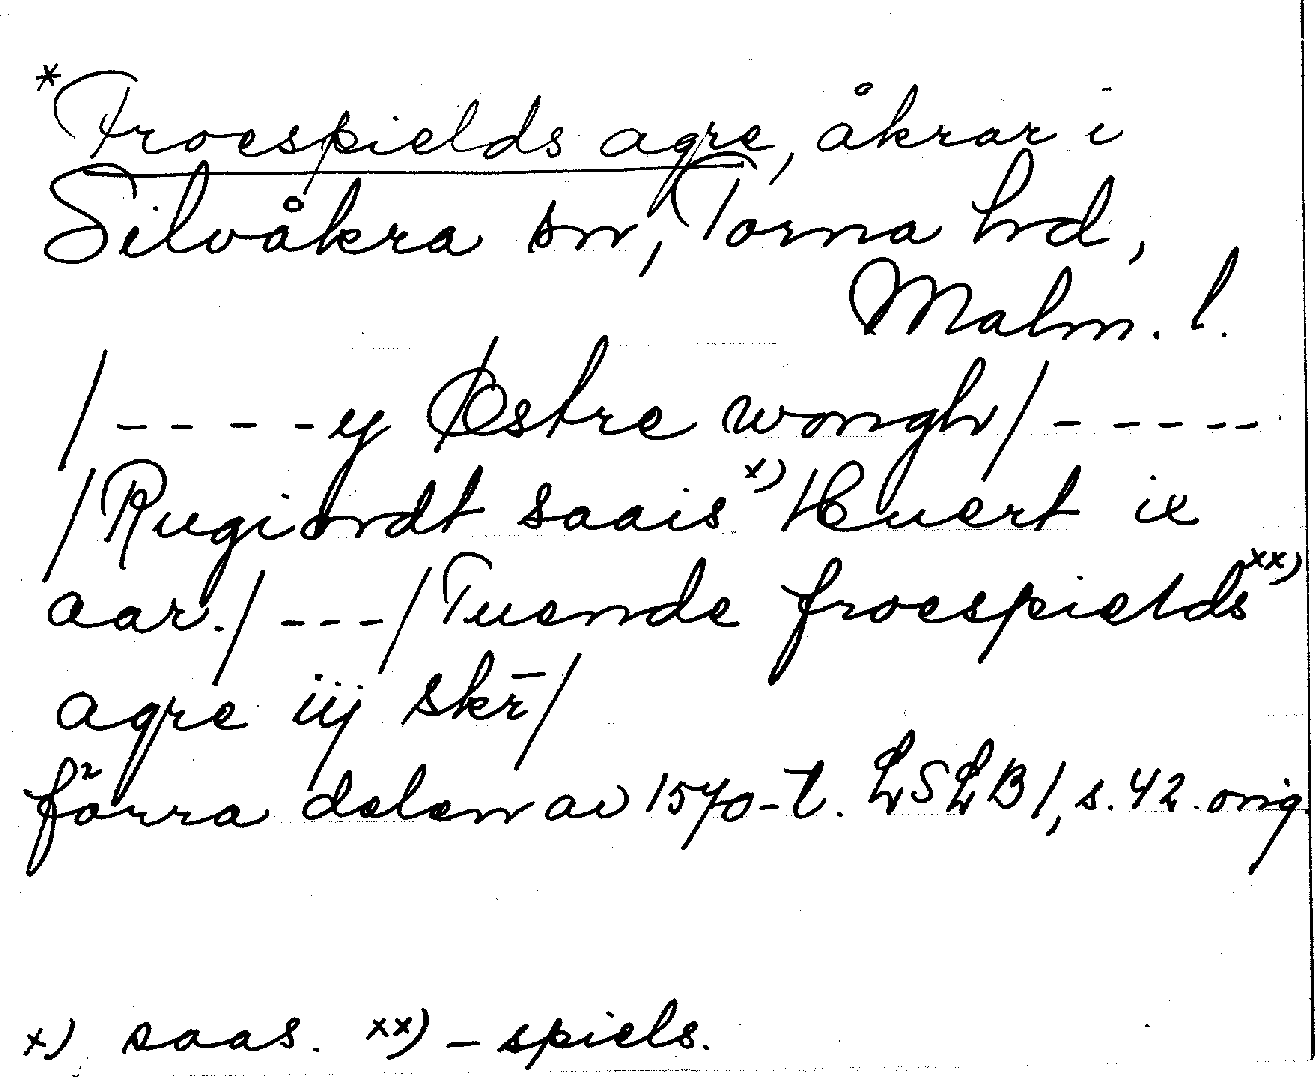 *Froespields agre, åkrar i
Silvåkra sn, Torna hd,
Malm. l.
/----y Østre wongh/-----
/Rugiordt saais x) Huert ix
aar./---/Tuende froespields xx)
agre iij skr̄/
förra delen av 1570-t. LSLB 1, s. 42 orig.
x) saas. xx) -spiels.